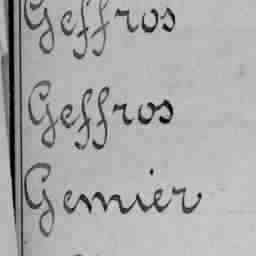 Geffros
Geffros
Gemier